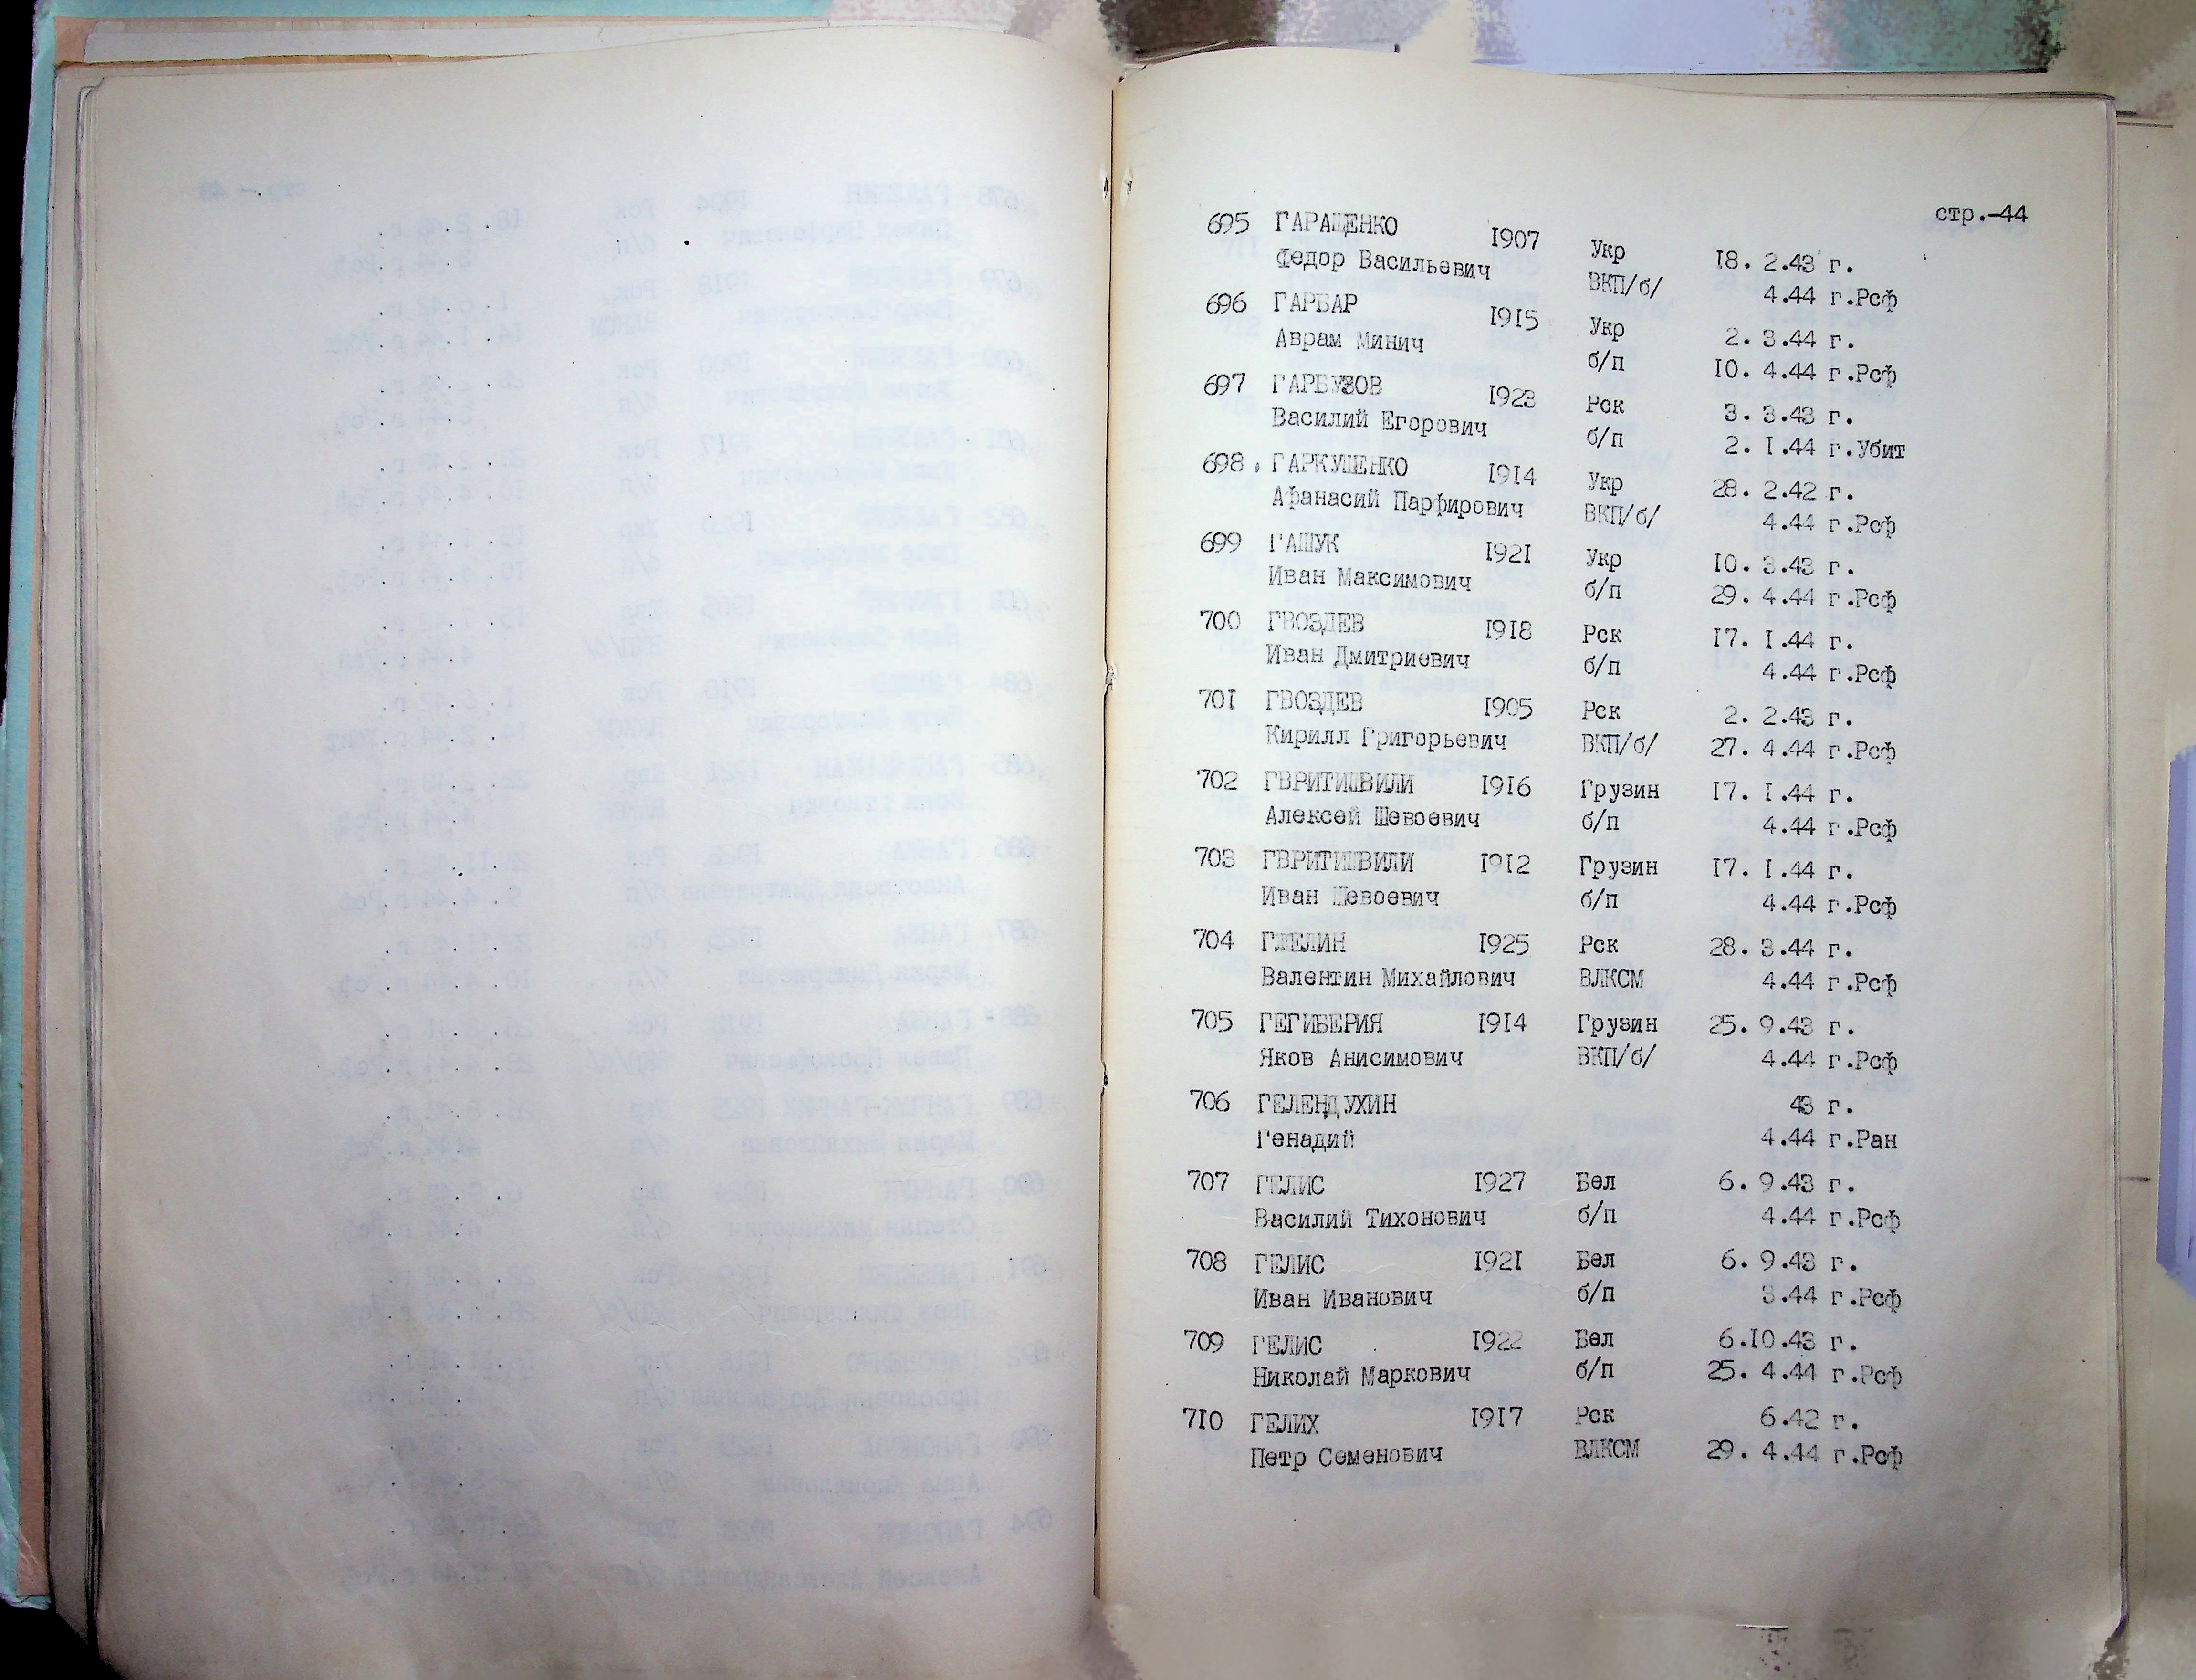 стр.-44
695 ГАРАЩЕНКО 1907 Укр 18. 2.43 г.
Федор Васильевич ВКП/б/ 4.44 г.Рсф
696 ГАРБАР 1915 Укр 2. 3.44 г.
Аврам Минич б/п 10. 4.44 г.Рсф
697 ГАРБУЗОВ 1923 Рск 3. 3.43 г.
Василий Егорович б/п 2. 1.44 г.Убит
698. ГАРКУШЕНКО 1914 Укр 28. 2.42 г.
Афанасий Парфирович ВКП/б/ 4.44 г.Рсф
699 ГАШУК 1921 Укр 10. 3.43 г.
Иван Максимович б/п 29. 4.44 г.Рсф
700 ГВОЗДЕВ 1918 Рск 17. 1.44 г.
Иван Дмитриевич б/п 4.44 г.Рсф
701 ГВОЗДЕВ 1905 Рск 2. 2.43 г.
Кирилл Григорьевич ВКП/б/ 27. 4.44 г.Рсф
702 ГВРИТИШВИЛИ 1916 Грузин 17. 1.44 г.
Алексей Шевоевич б/п 4.44 г.Рсф
703 ГВРИТИШВИЛИ 1912 Грузин 17. 1.44 г.
Иван Шевоевич б/п 4.44 г.Рсф
704 1925 Рск 28. 3.44 г.
Валентин Михайлович ВЛКСМ 4.44 г.Рсф
705 ГЕГИБЕРИЯ 1914 Грузин 25. 9.43 г.
Яков Анисимович ВКП/б/ 4.44 г.Рсф
706 ГЕЛЕНДУХИН 43 г.
Генадий 4.44 г.Ран
707 ГЕЛИС 1927 Бел 6. 9.43 г.
Василий Тихонович б/п 4.44 г.Рсф
708 ГЕЛИС 1921 Бел 6. 9.43 г.
Иван Иванович б/п 3.44 г.Рсф
709 ГЕЛИС 1922 Бел 6.10.43 г.
Николай Маркович б/п 25. 4.44 г.Рсф
710 ГЕЛИХ 1917 Рск 6.42 г.
Петр Семенович ВЛКСМ 29. 4.44 г.Рсф